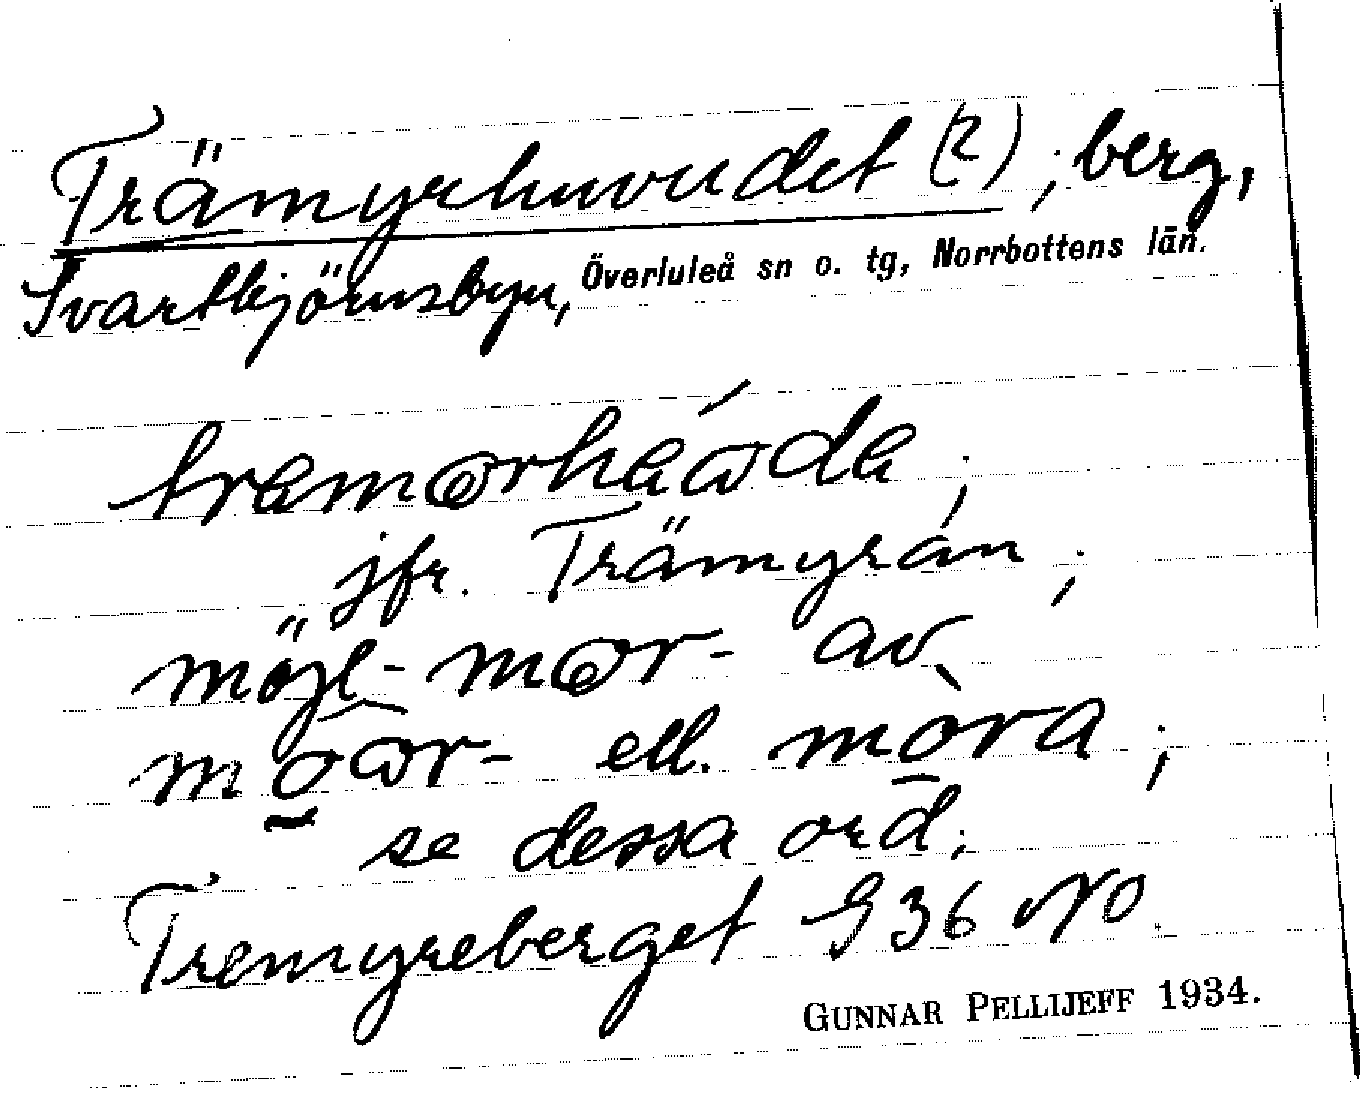 Trämyrhuvudet (?); berg,
Svartbjörnsbyn, Överluleå sn o. tg, Norrbottens län.
jfr. Trämyrån;
möjl- mɷr- av
ell. mòra;
se dessa ord;
Tremyreberget G 36 NO
GUNNAR PELLIJEFF 1934.